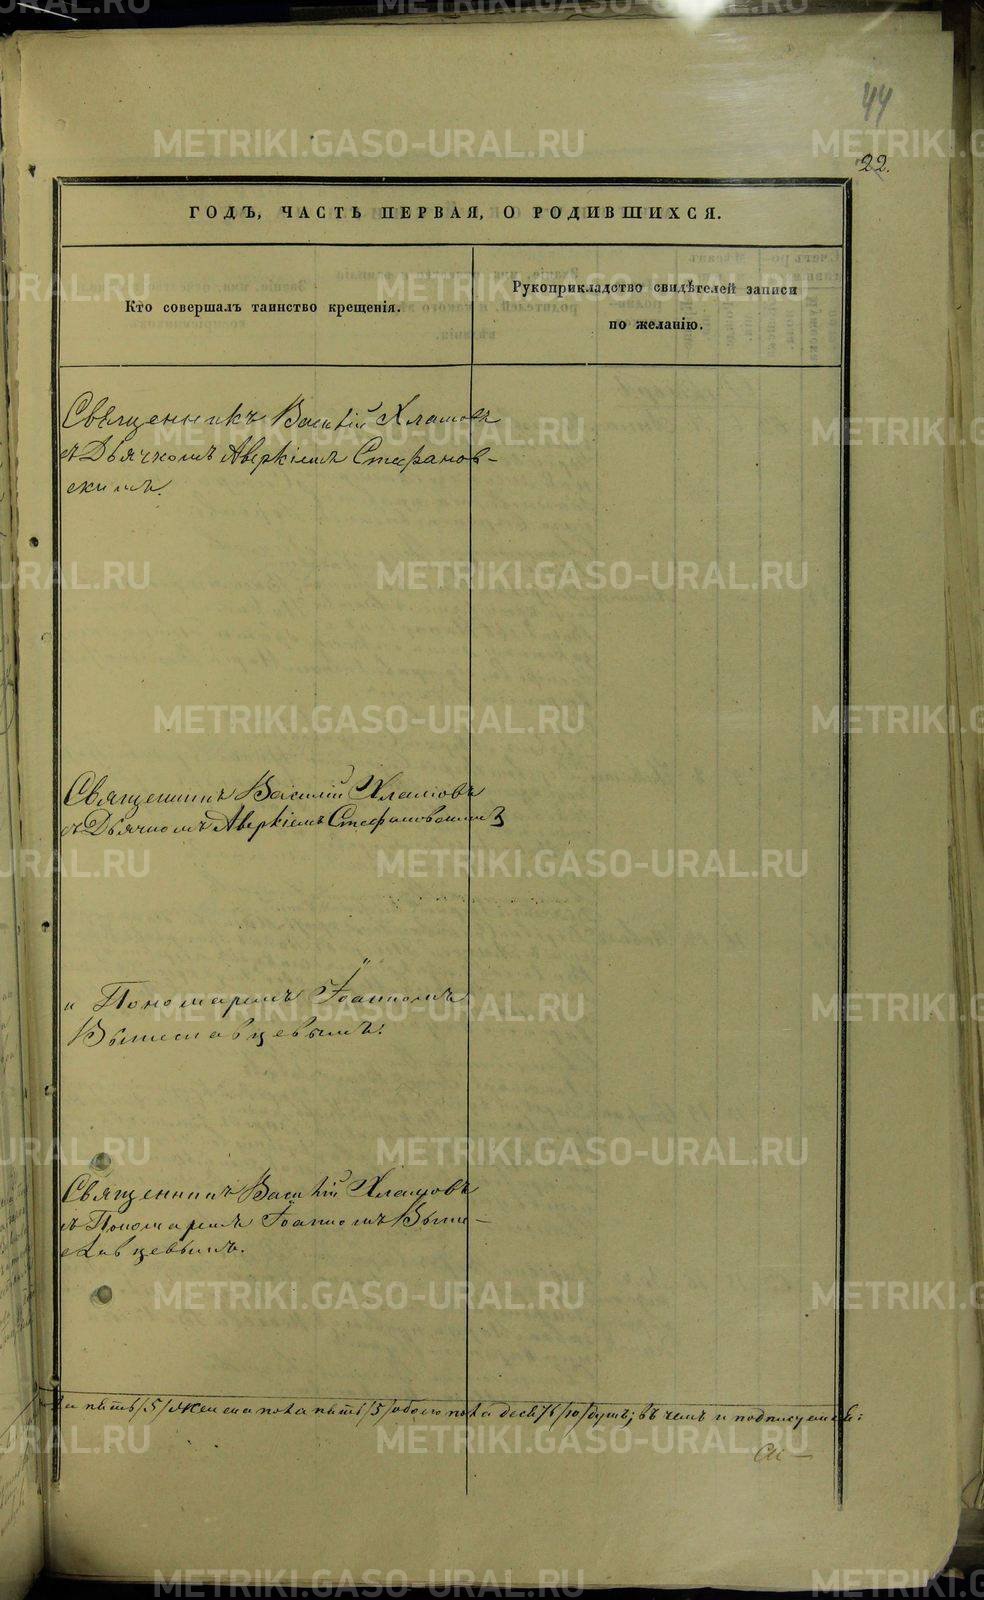 44
22.
ГОДЪ, ЧАСТЬ ПЕРВАЯ, О РОДИВШИХСЯ.
Кто совершалъ таинство крещенія.
Рукоприкладство свидѣтелей записи
по желанію.
Священникъ Василій Хламовъ
съ Дьячкомъ Аверкіемъ Стефанов-
скимъ.
Священникъ Василій Хламовъ
съ Дьячкомъ Аверкіемъ Стефановскимъ
„ „
„ Пономаремъ Іоанномъ
Вышеславцевымъ.
Священникъ Василій Хламовъ
съ Пономаремъ Іоанномъ Выше-
славцевымъ.
ла пять /5/ женска пола пять /5/ обоего пола десять /10/ душъ; въ чемъ и подписуемся:
METRIKI.GASO-URAL.RU